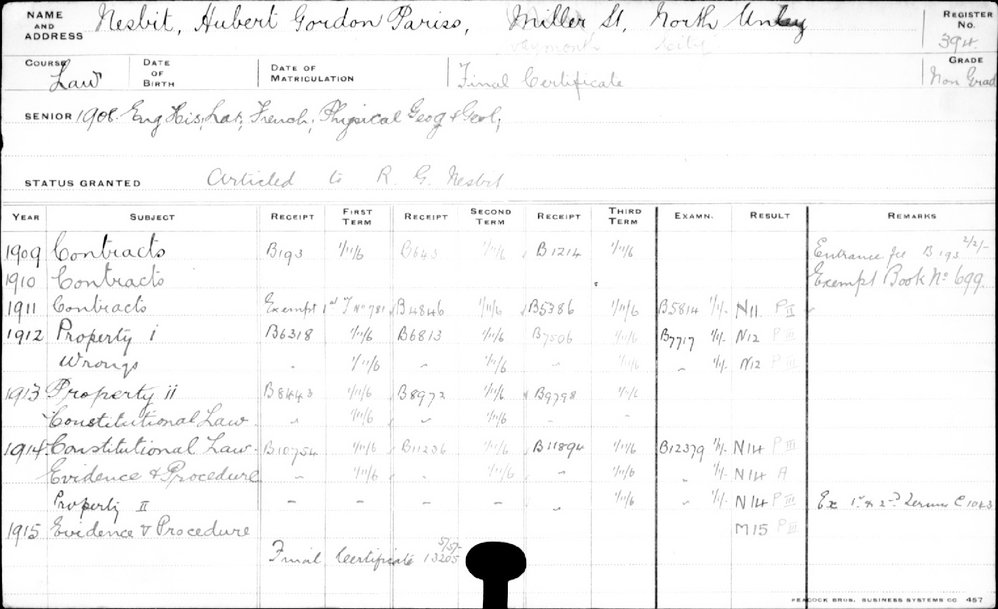 NAME AND ADDRESS Nesbit, Hubert Gordon Pariss, Miller St, North Unley REGISTER No. 394
COURSE Law DATE OF BIRTH DATE OF MATRICULATION Final Certificate GRADE Non Grad
SENIOR 1908. Eng His, Lat, French, Physical Geog & Geol,
STATUS GRANTED Articled to R. G. Nesbit
YEAR SUBJECT RECEIPT FIRST TERM RECEIPT SECOND TERM RECEIPT THIRD TERM EXAMN. RESULT REMARKS
1909 Contracts B193 1/11/6 B643 1/11/6 B1214 1/11/6 Entrance fee B193 2/2/-
1910 Contracts Exempt Book No 699.
1911 Contracts Exempt 1st T No 781 B4846 1/11/6 B5386 1/11/6 B5814 1/1/- N11 P II
1912 Property i B6318 1/11/6 B6813 1/11/6 B7506 1/11/6 B7717 1/1/- N12 P III
Wrongs " 1/11/6 " 1/11/6 " 1/11/6 " 1/1/- N12 P III
1913 Property ii B8443 1/11/6 B8972 1/11/6 B9798 1/11/6
Constitutional Law. " 1/11/6 " 1/11/6 -
1914 Constitutional Law. B10754 1/11/6 B11236 1/11/6 B11894 1/11/6 B12379 1/1/- N14 P III
Evidence & Procedure " 1/11/6 " 1/11/6 " 1/11/6 " 1/1/- N14 A
Property II - - - - " 1/11/6 " 1/1/- N14 P III Ex 1st & 2nd Terms C1043
1915 Evidence & Procedure M15 P III
Final Certificate 13205 5/5/-
PEACOCK BROS. BUSINESS SYSTEMS CO 457